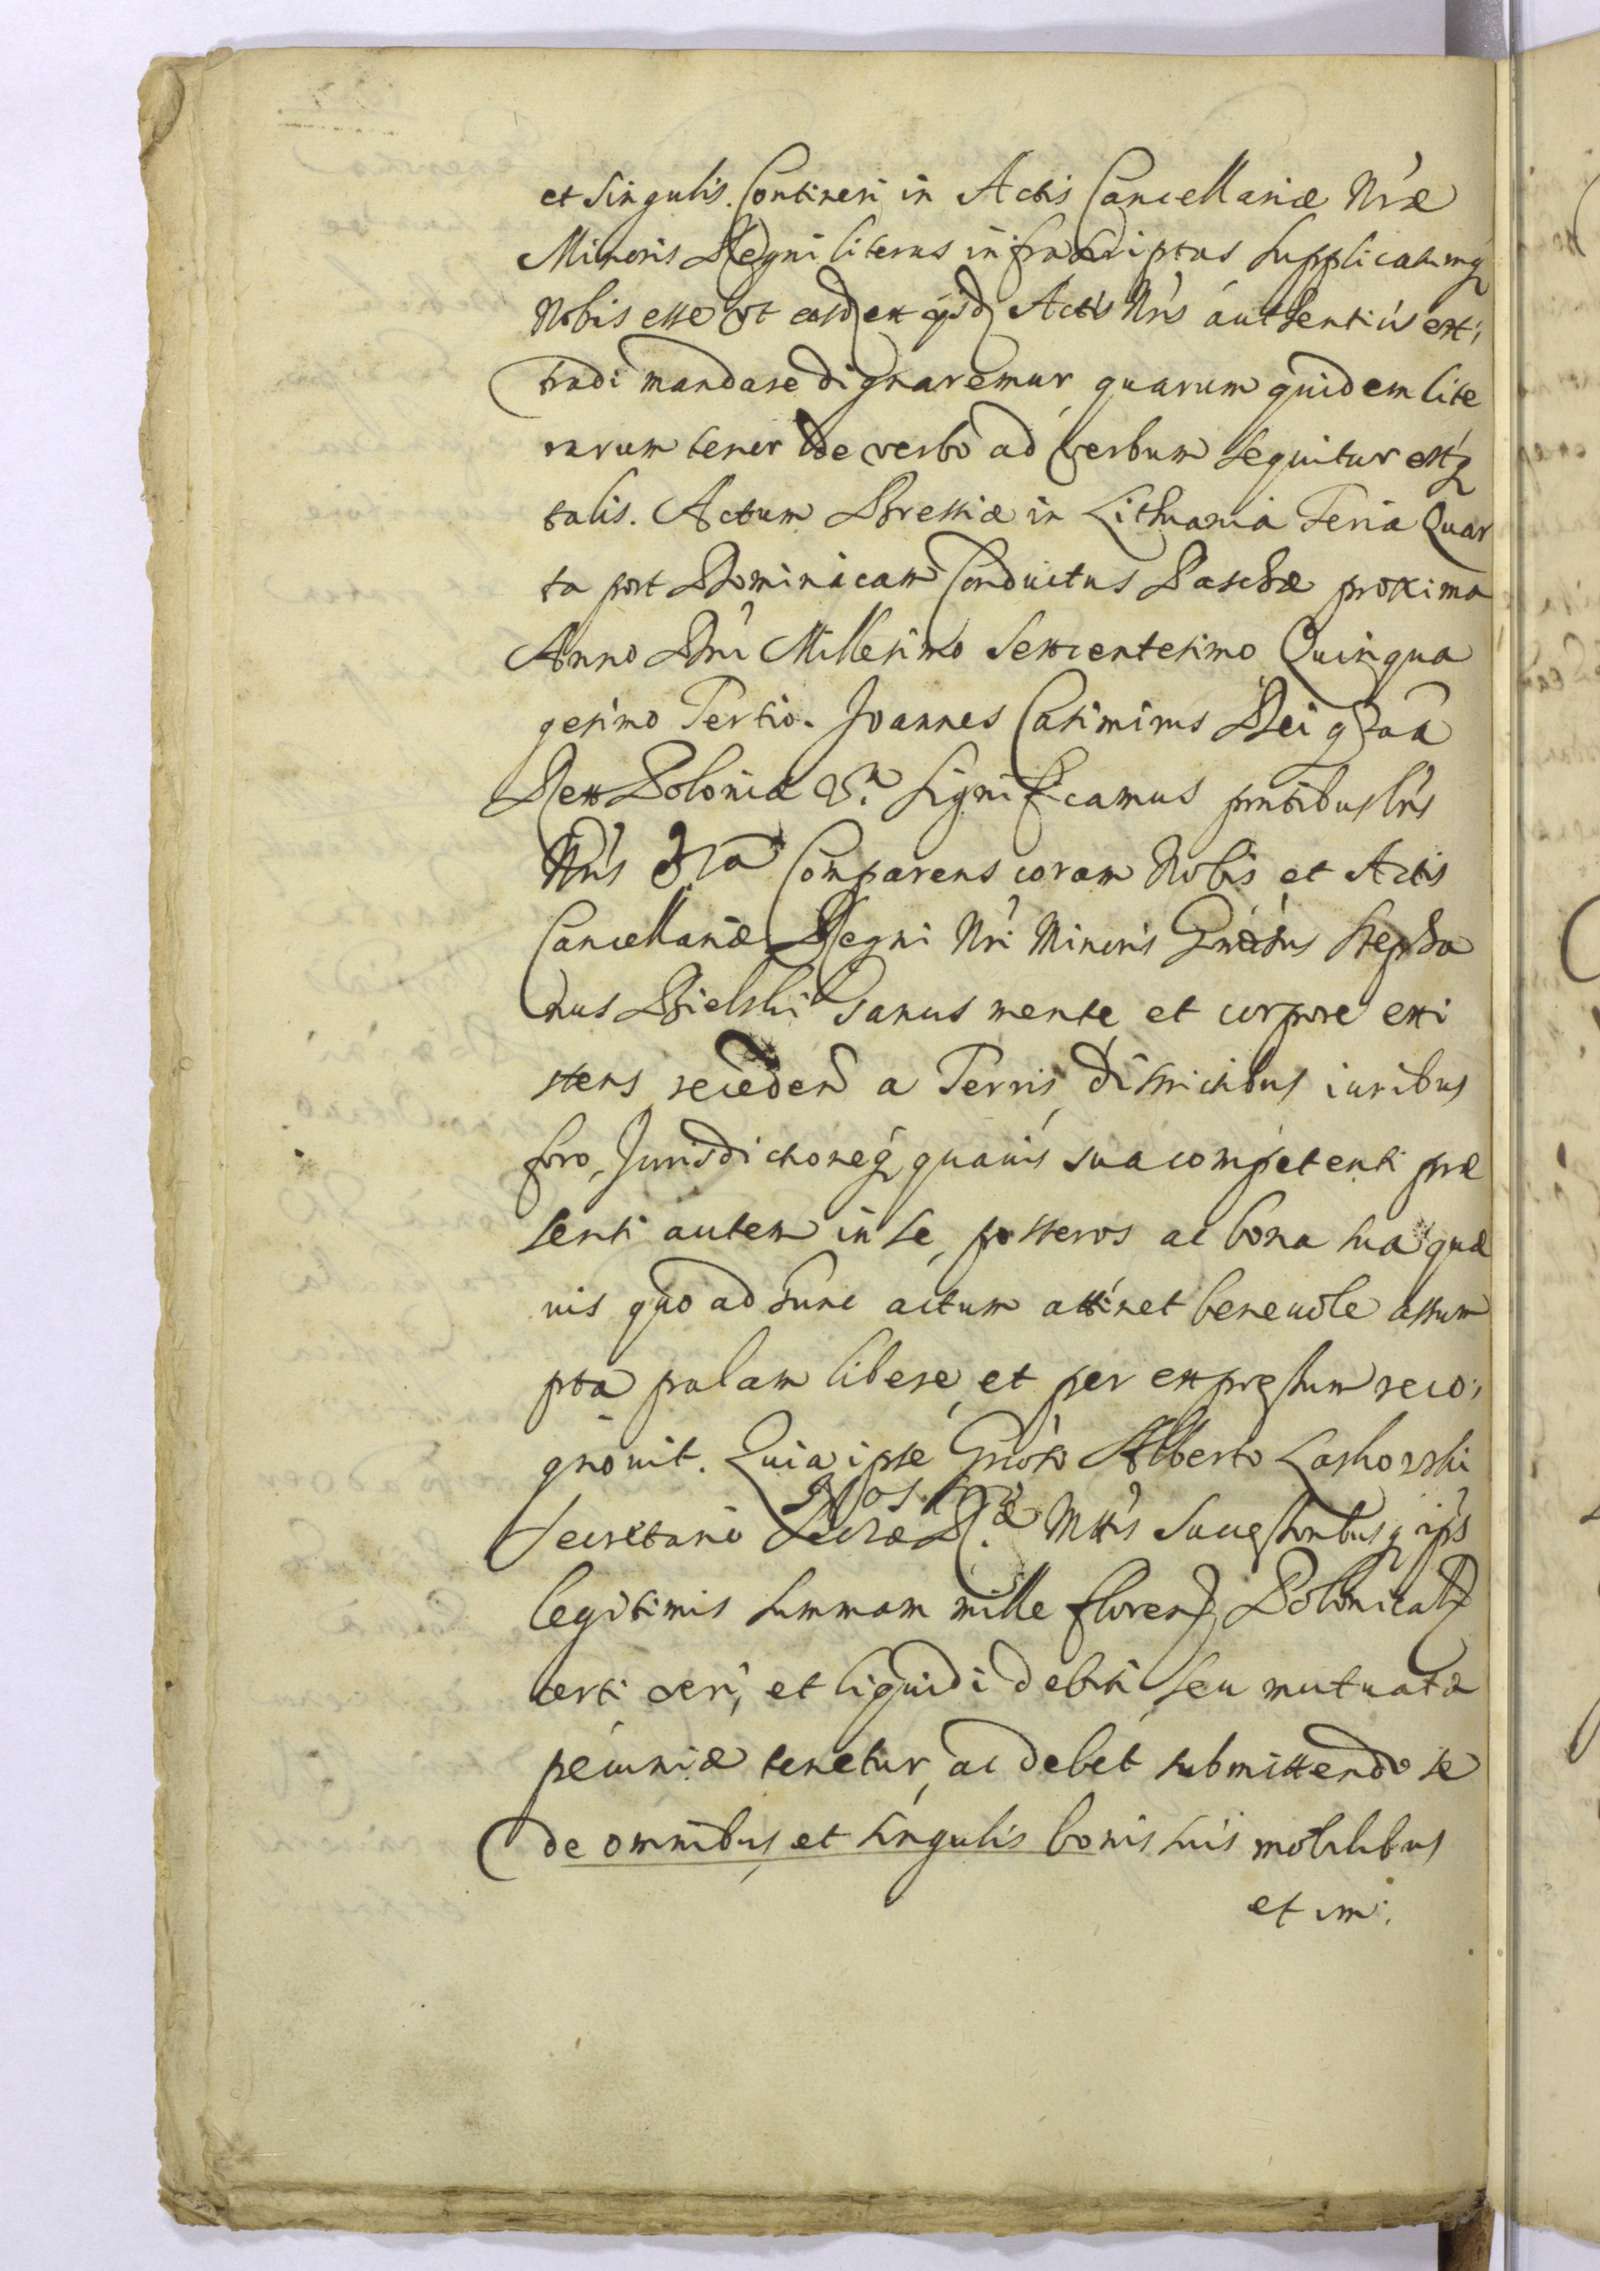 et singulis. Contineri in Actis Cancellariæ Nræ
Minoris Regni literas infrascriptas supplicatumq
Nobis esse ut easd ex ijsd Actis Nris authenticis ex
tradi mandare dignaremur quarum quidem lite
rarum tenor de verbo ad verbum sequitur estq
talis. Actum Brestiæ in Lithuania Feria Quar
ta post Dominicam Conductus Paschæ proxima
Anno Dni Millesimo Sexcentesimo Quinqua
gesimo Tertio. Joannes Casimirus Dei graa
Rex Poloniæ Significamus pntibus lris
Nris Comparens coram Nobis et Actis
Cancellariæ Regni Nri Minoris Gnrosus Stepha
nus Bielski Sanus mente et corpore exi
stens, receden a Terris, districtibus iuribus
foro, Jurisdictioneq quauis sua competenti præ
senti autem in se, posteros ac bona sua quæ
uis quo ad hunc actum attinet beneuole assum
pta palam libere, et per expressum reco
gnouit. Quia ipse Gnroso Alberto Laskowski
Secretario Sacræ R. Mttis Successoribusq ips
legitimis summam mille floren Polonical
certi æris, et liquidi debiti seu mutuatæ
pecuniæ tenetur, ac debet submittendo se
de omnibus, et singulis bonis suis mobilibus
et im: